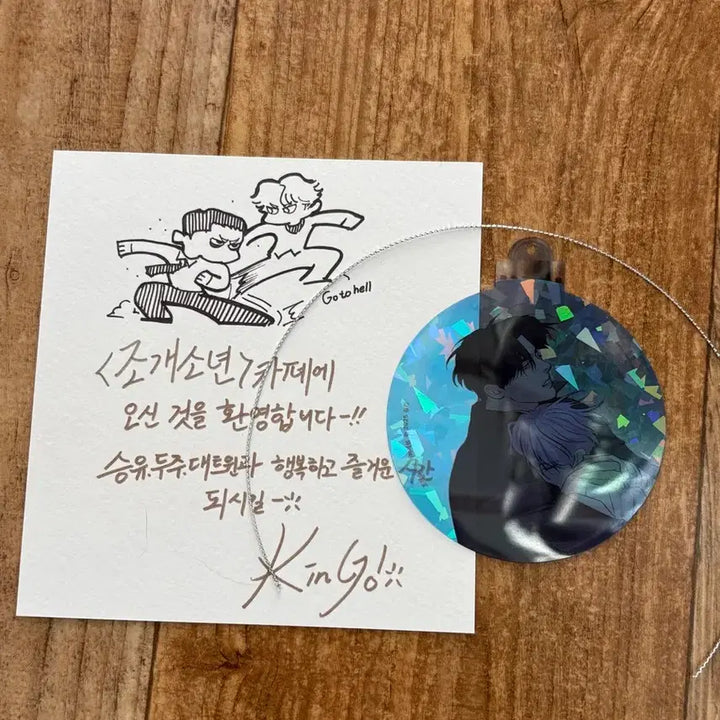 Go to hell
<조개소년>카페에
오신 것을 환영합니다-!!
승유.두주.대트원과 행복하고 즐거운 시간
되시길-
KinGo!